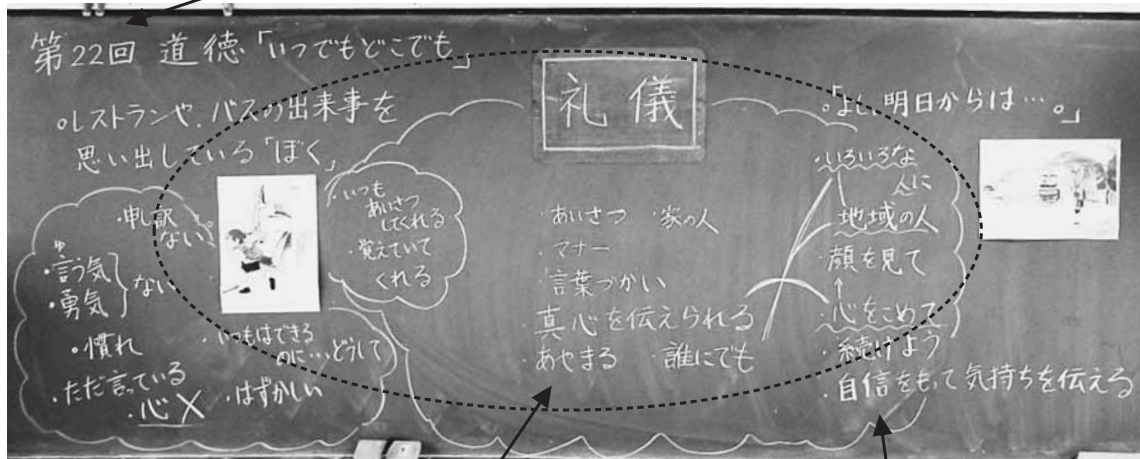 第22回 道徳「いつでもどこでも」
レストランや、バスの出来事を
思い出している「ぼく」
・申し訳
ない。
ゆ
・言う気
・勇気
ない
・慣れ
・ただ言っている
・心×
・いつもはできる
のに…どうして
・はずかしい
・いつも
あいさつ
してくれる
・覚えていて
くれる
礼儀
・あいさつ
・家の人
・マナー
・言葉づかい
・真心を伝えられる
・あやまる
・誰にでも
「よし、明日からは…。」
・いろいろな
人に
地域の人
・顔を見て
↑
・心をこめて
・続けよう
・自信をもって気持ちを伝える